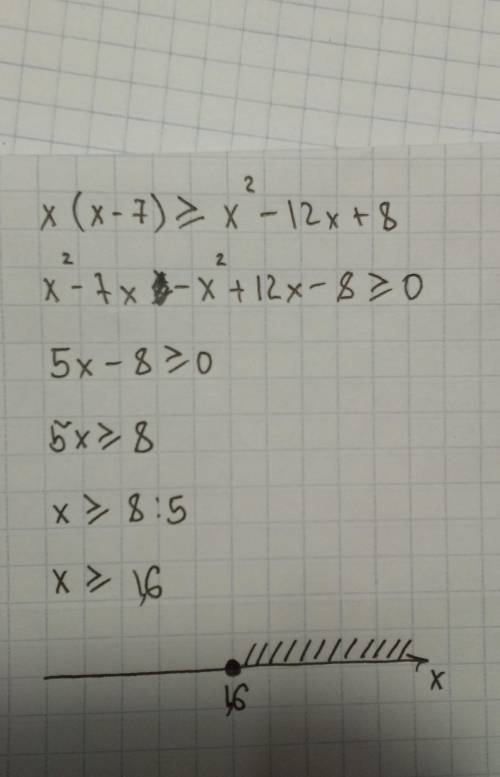 x(x-7) ≥ x² - 12x + 8
x² - 7x - x² + 12x - 8 ≥ 0
5x - 8 ≥ 0
5x ≥ 8
x ≥ 8:5
x ≥ 1,6
1,6 x